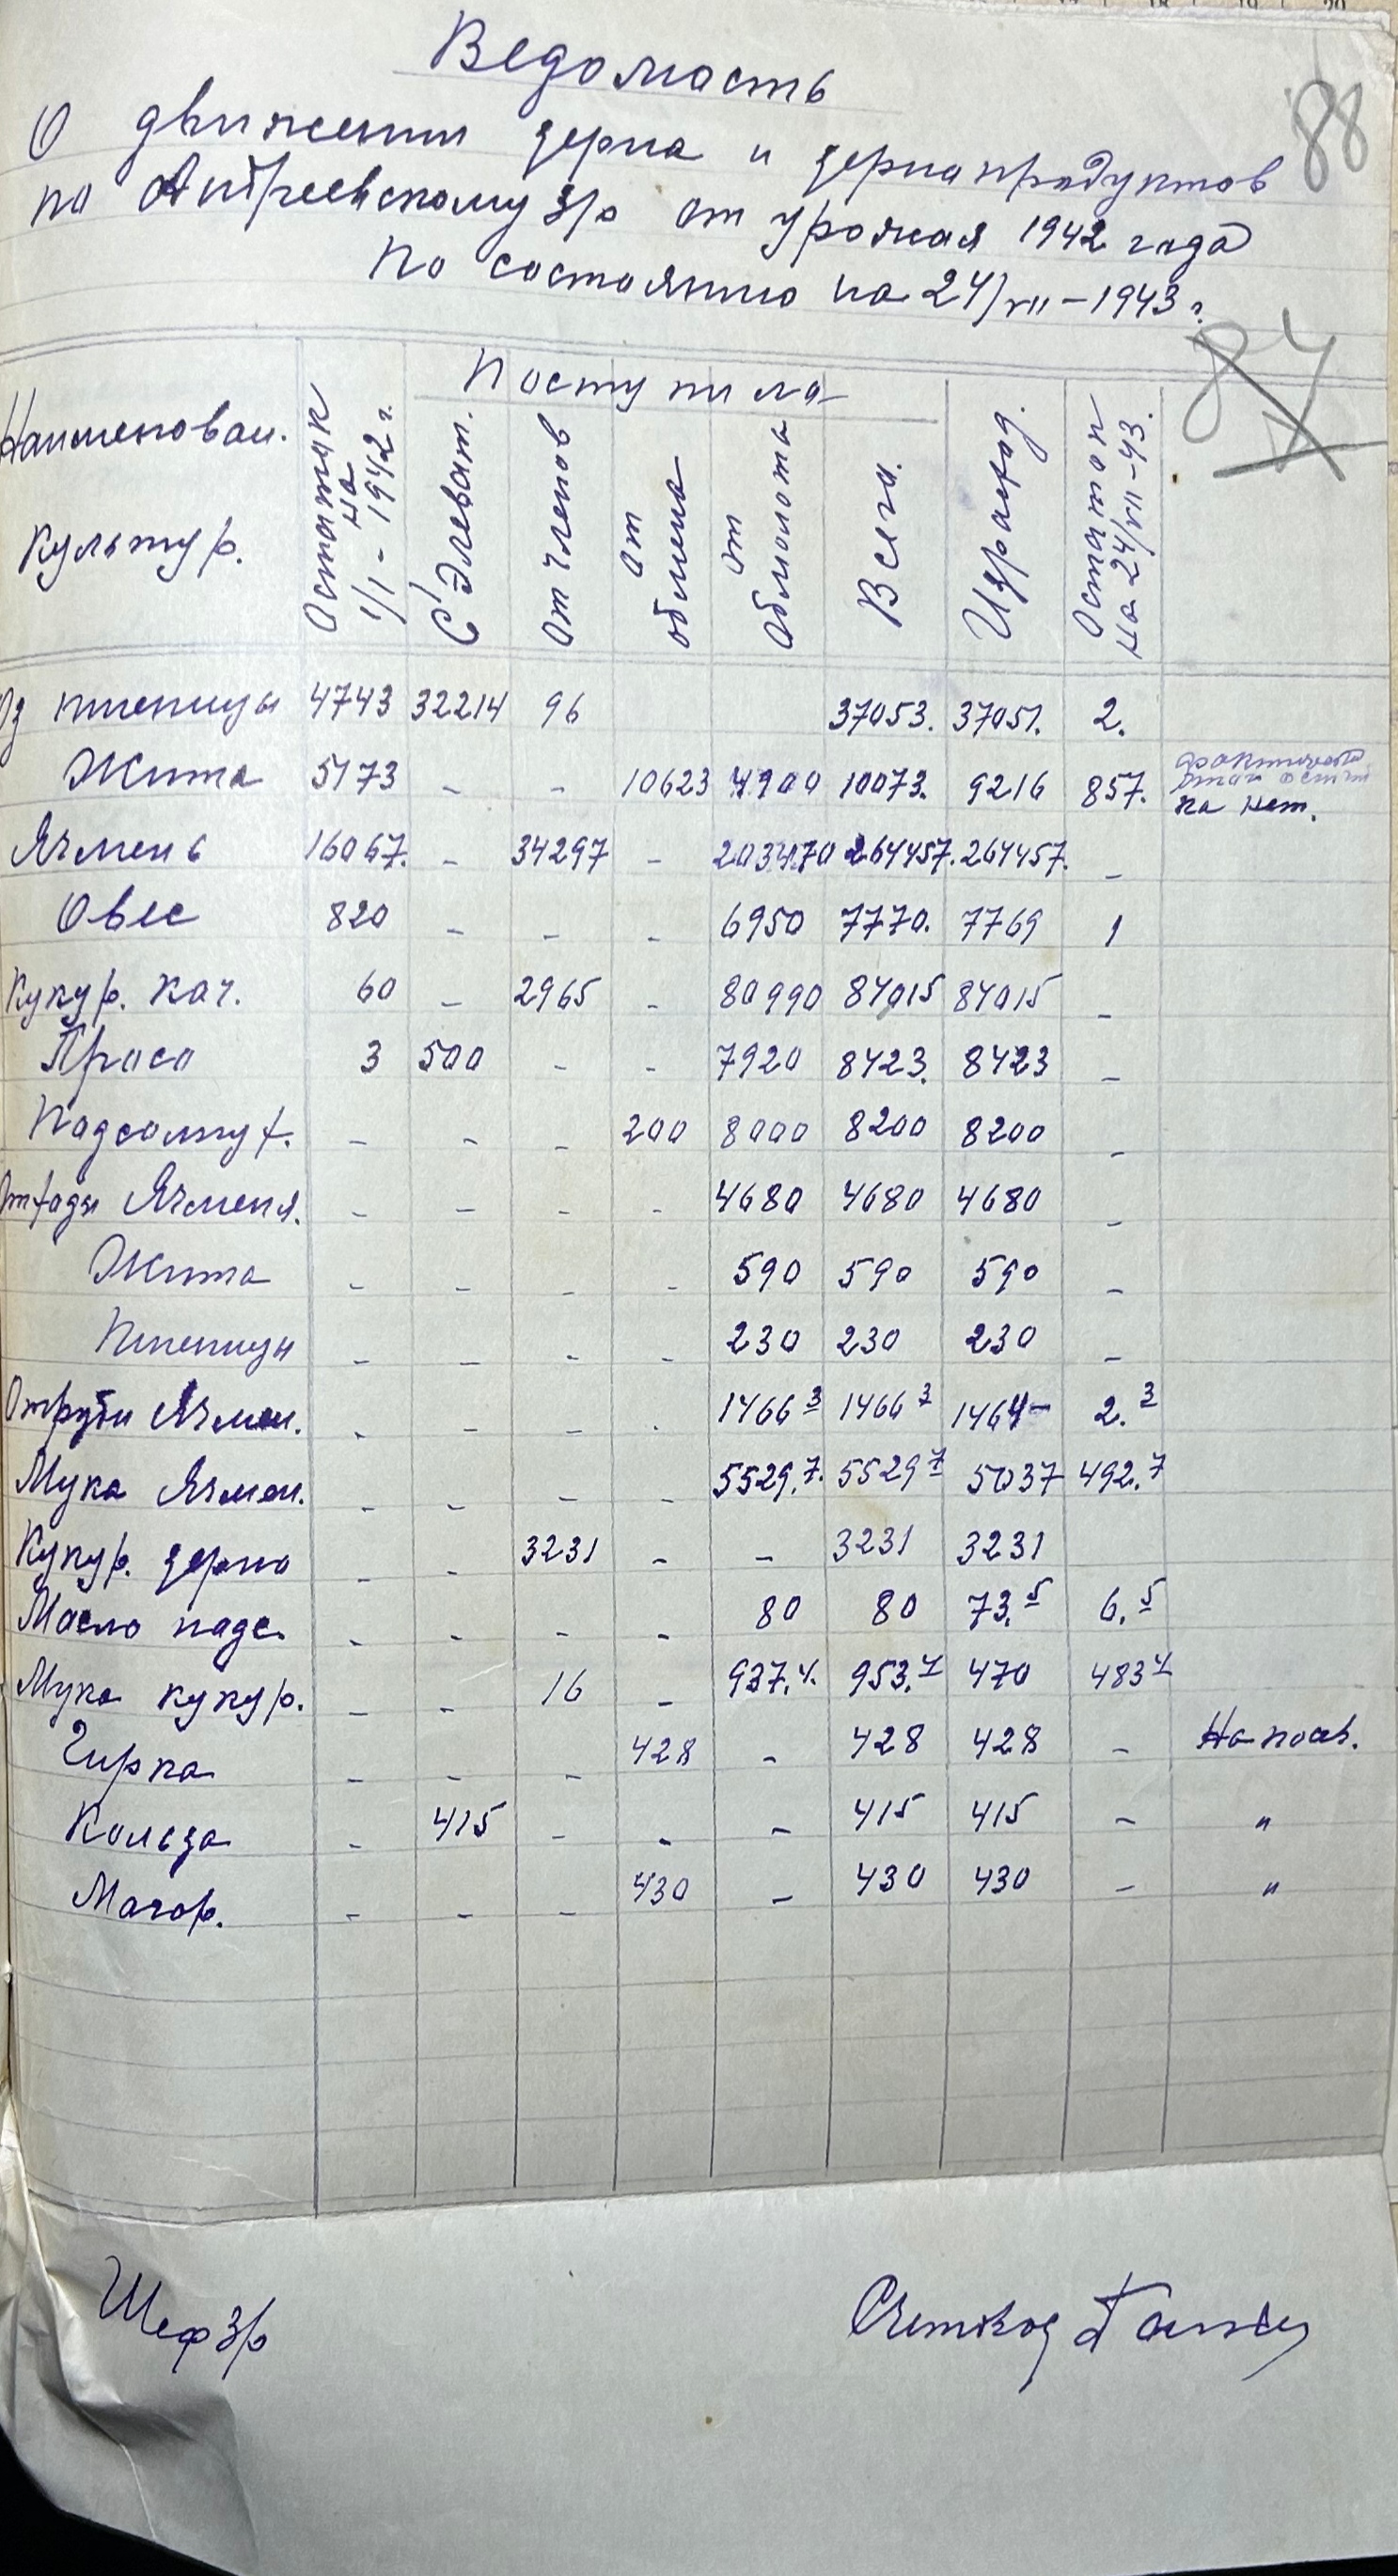 88
Ведомость
О движении зерна и зернапродуктов
по Андреевскому З/о от урожая 1942 года
По состоянию на 24/VII – 1943 г.
84
Наименован. культур. Остаток на 1/I - 1942 г. Поступила Израсход. Остаток на 24/VII-43.
С Элеват. От членов От обмена От обмолота Всего.
Оз пшеницы 4743 32214 96 37053. 37051. 2.
Жита 5173 - - 10623 4900 10073. 9216 857. фактически
остат
ка нет.
Ячмень 16067. - 34297 - 203470 264457. 264457. -
Овес 820 - - - 6950 7770. 7769 1
Кукур. кач. 60 - 2965 - 80990 84015 84015 -
Просо 3 500 - - 7920 8423. 8423 -
Подсолнух. - - - 200 8000 8200 8200 -
Отходы Ячменя. - - - - 4680 4680 4680 -
Жита - - - - 590 590 590 -
Пшеницы - - - - 230 230 230 -
Отруби Ячмен. - - - - 1466 3 1466 3 1464- 2. 3
Мука Ячмен. - - - - 5529. 7. 5529 7 5037 492. 7
Кукур. зерно - - 3231 - - 3231 3231
Масло подс. - - - - 80 80 73. 5 6. 5
Мука кукур. - - 16 - 937. 4. 953. 4 470 483 4
Гирка - - - 428 - 428 428 - На посев.
Кользa - 415 - - - 415 415 - "
Мачор. - - - 430 - 430 430 - "
Шеф З/о Счетовод